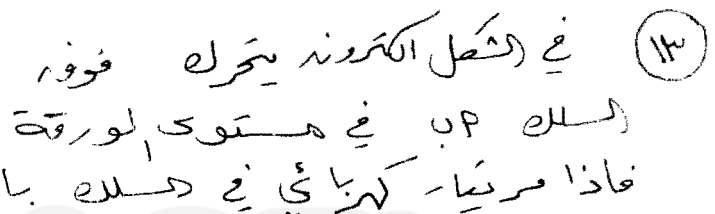 ١٣ في الشكل الكترون يتحرك فوق
السلك ab في مستوى الورقة
فاذا مر تيار كهربائي في السلك با